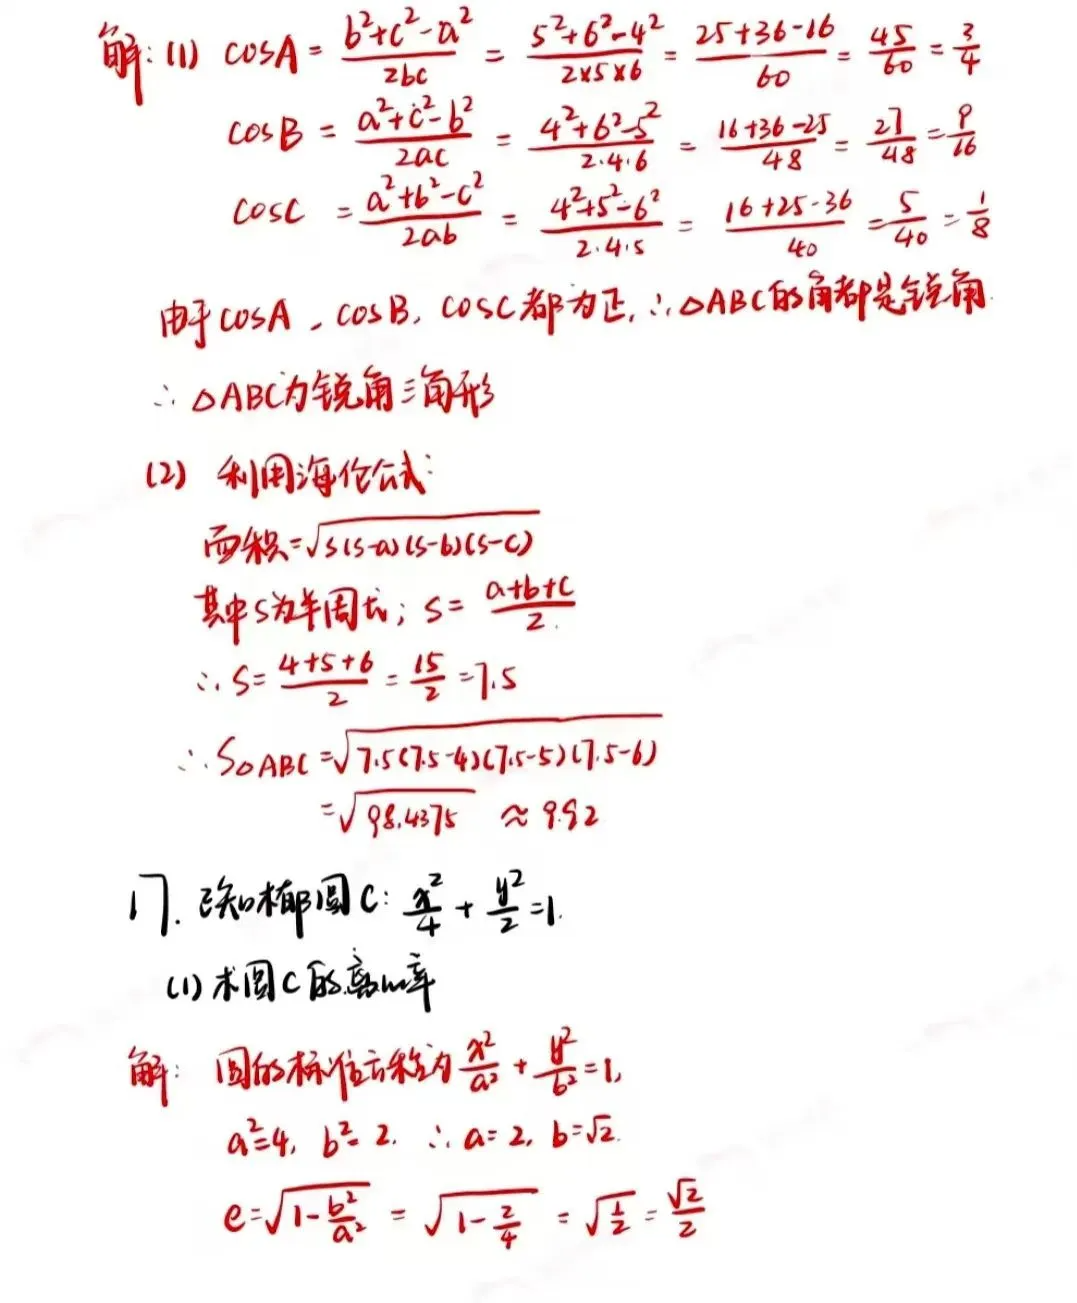 解: (1) cosA = \frac{b²+c²-a²}{2bc} = \frac{5²+6²-4²}{2×5×6} = \frac{25+36-16}{60} = \frac{45}{60} = \frac{3}{4}
cosB = \frac{a²+c²-b²}{2ac} = \frac{4²+6²-5²}{2·4·6} = \frac{16+36-25}{48} = \frac{27}{48} = \frac{9}{16}
cosC = \frac{a²+b²-c²}{2ab} = \frac{4²+5²-6²}{2·4·5} = \frac{16+25-36}{40} = \frac{5}{40} = \frac{1}{8}
由于cosA, cosB, cosC都为正, ∴△ABC的角都是锐角.
∴ △ABC为锐角三角形
(2) 利用海伦公式:
面积=√(s(s-a)(s-b)(s-c))
其中s为半周长; s= \frac{a+b+c}{2}.
∴ s= \frac{4+5+6}{2} = \frac{15}{2} =7.5
∴ S△ABC =√(7.5(7.5-4)(7.5-5)(7.5-6))
=√98.4375 ≈ 9.92
17. 已知椭圆C: \frac{x²}{4} + \frac{y²}{2} =1.
(1) 求圆C的离心率
解: 圆的标准方程为 \frac{x²}{a²} + \frac{y²}{b²} =1,
a²=4, b²= 2. ∴ a= 2, b=√2.
e=√(1-\frac{b²}{a²}) = √(1-\frac{2}{4}) = √\frac{1}{2} = \frac{√2}{2}